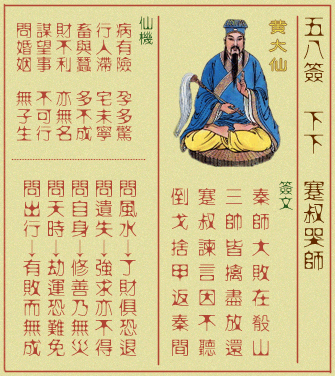 五八簽 下下 蹇叔哭師
黃大仙
簽文
秦師大敗在殽山
三帥皆擒盡放還
蹇叔諫言因不聽
倒戈捨甲返秦間
仙機
病有險 孕多驚
行人滯 宅未寧
畜與蠶 多不成
財不利 亦無名
謀望事 不可行
問婚姻 無子生
問風水→了財俱恐退
問遺失→強求亦不得
問自身→修善乃無災
問天時→劫運恐難免
問出行→有敗而無成